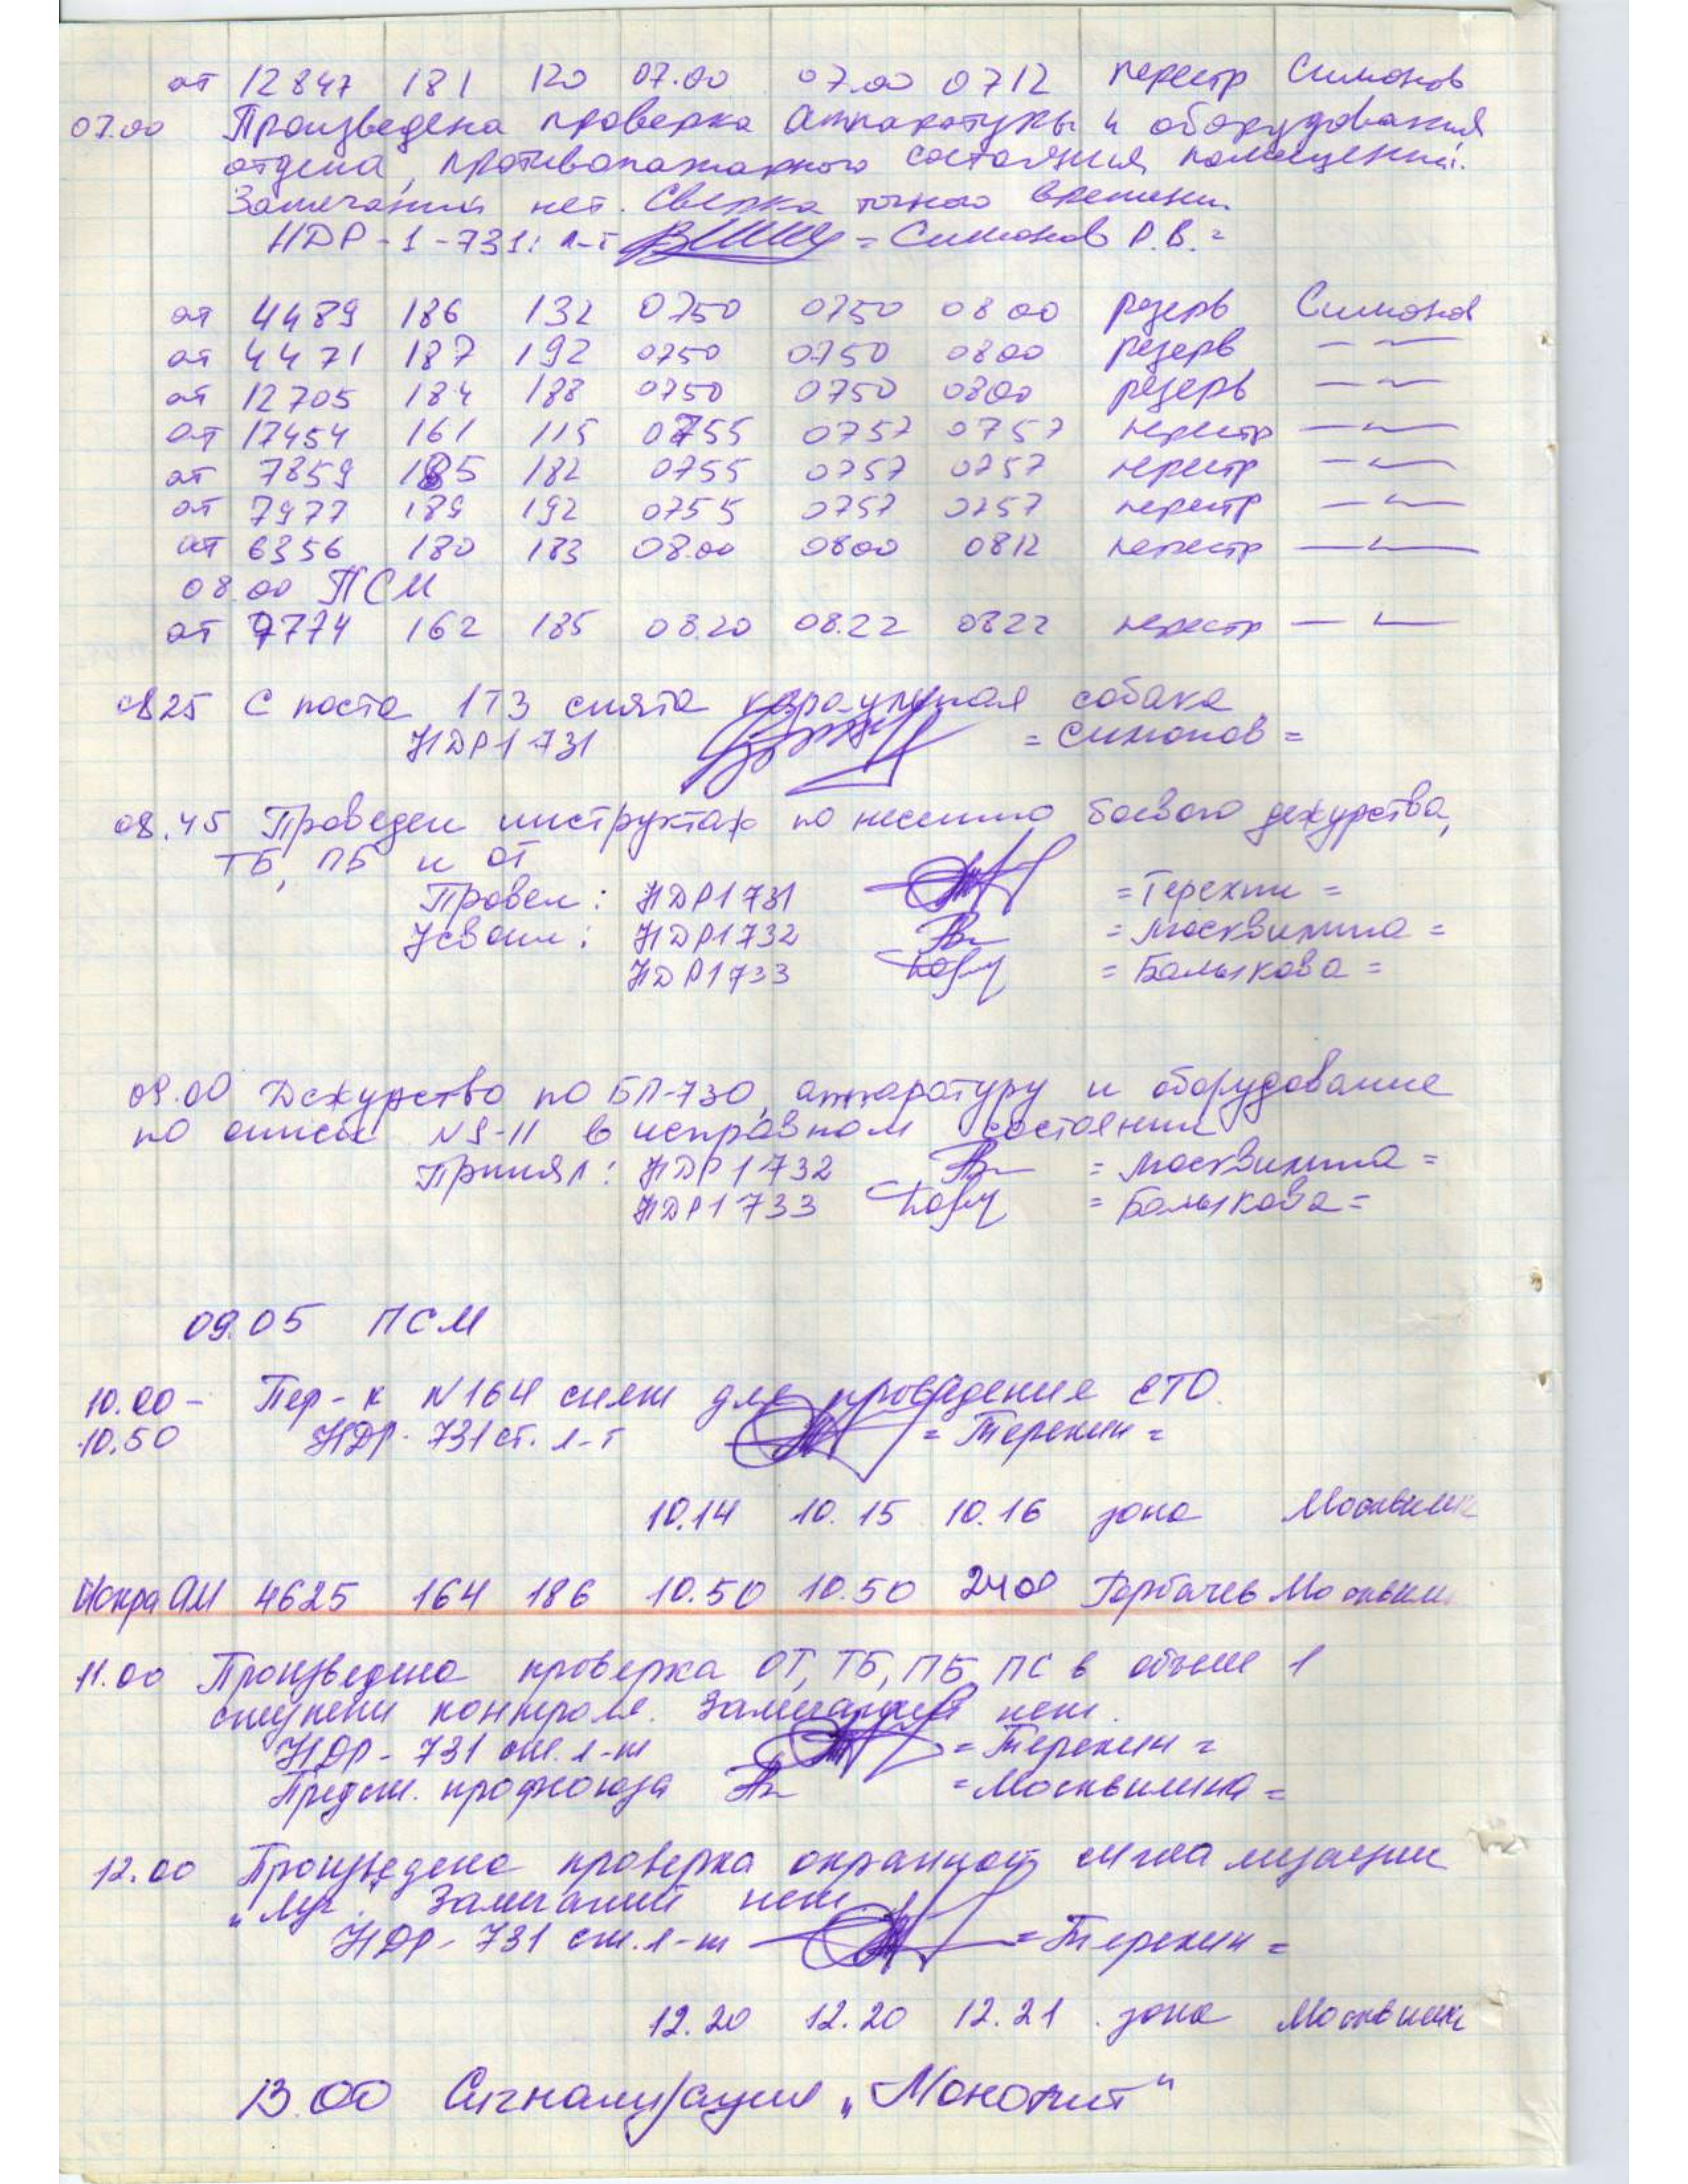 от 12847 181 120 07.00 07.00 0712 перестр Симонов
07.00 Произведена проверка аппаратуры и оборудования
отдела, противопожарного состояния помещений.
Замечаний нет. Сверка точного времени.
НДР-1-731: л-т = Симонов Р.В. =
от 4489 186 132 0750 0750 0800 резерв Симонов
от 4471 187 192 0750 0750 0800 резерв — — 
от 12705 184 188 0750 0750 0800 резерв — —
от 17454 161 115 0755 0757 0757 перестр — —
от 7859 185 182 0755 0757 0757 перестр — —
от 7977 189 192 0755 0757 0757 перестр — —
от 6356 180 183 08.00 0800 0812 перестр — —
08.00 ПСМ
от 9774 162 185 08.20 08.22 0822 перестр — —
0825 С поста 1ТЗ снята караульная собака
НДР1 731 = Симонов =
08.45 Проведен инструктаж по несению боевого дежурства,
ТБ, ПБ и ОТ
Провел: НДР1 731 = Терехин =
Усвоил: НДР1 732 = Москвилина =
НДР1 733 = Балыкова =
09.00 Дежурство по БП-730, аппаратуру и оборудование
по описи N9-11 в исправном состоянии
Принял: НДР1 732 = Москвилина =
НДР1 733 = Балыкова =
09.05 ПСМ
10.00 - Пер-к N164 снят для проведения ЕТО.
10.50 НДР-731 ст. л-т = Терехин =
10.14 10.15 10.16 зона Москвилин
Искра АМ 4625 164 186 10.50 10.50 2400 Горбачев Москвилин
11.00 Произведена проверка ОТ, ТБ, ПБ, ПС в объеме 1
ступени контроля. Замечаний нет.
НДР-731 ст. л-т = Терехин =
Предст. профсоюза = Москвилина =
12.00 Произведена проверка охранной сигнализации
„Луч". Замечаний нет.
НДР-731 ст. л-т = Терехин =
12.20 12.20 12.21 зона Москвилин
13.00 Сигнализация „Монолит"